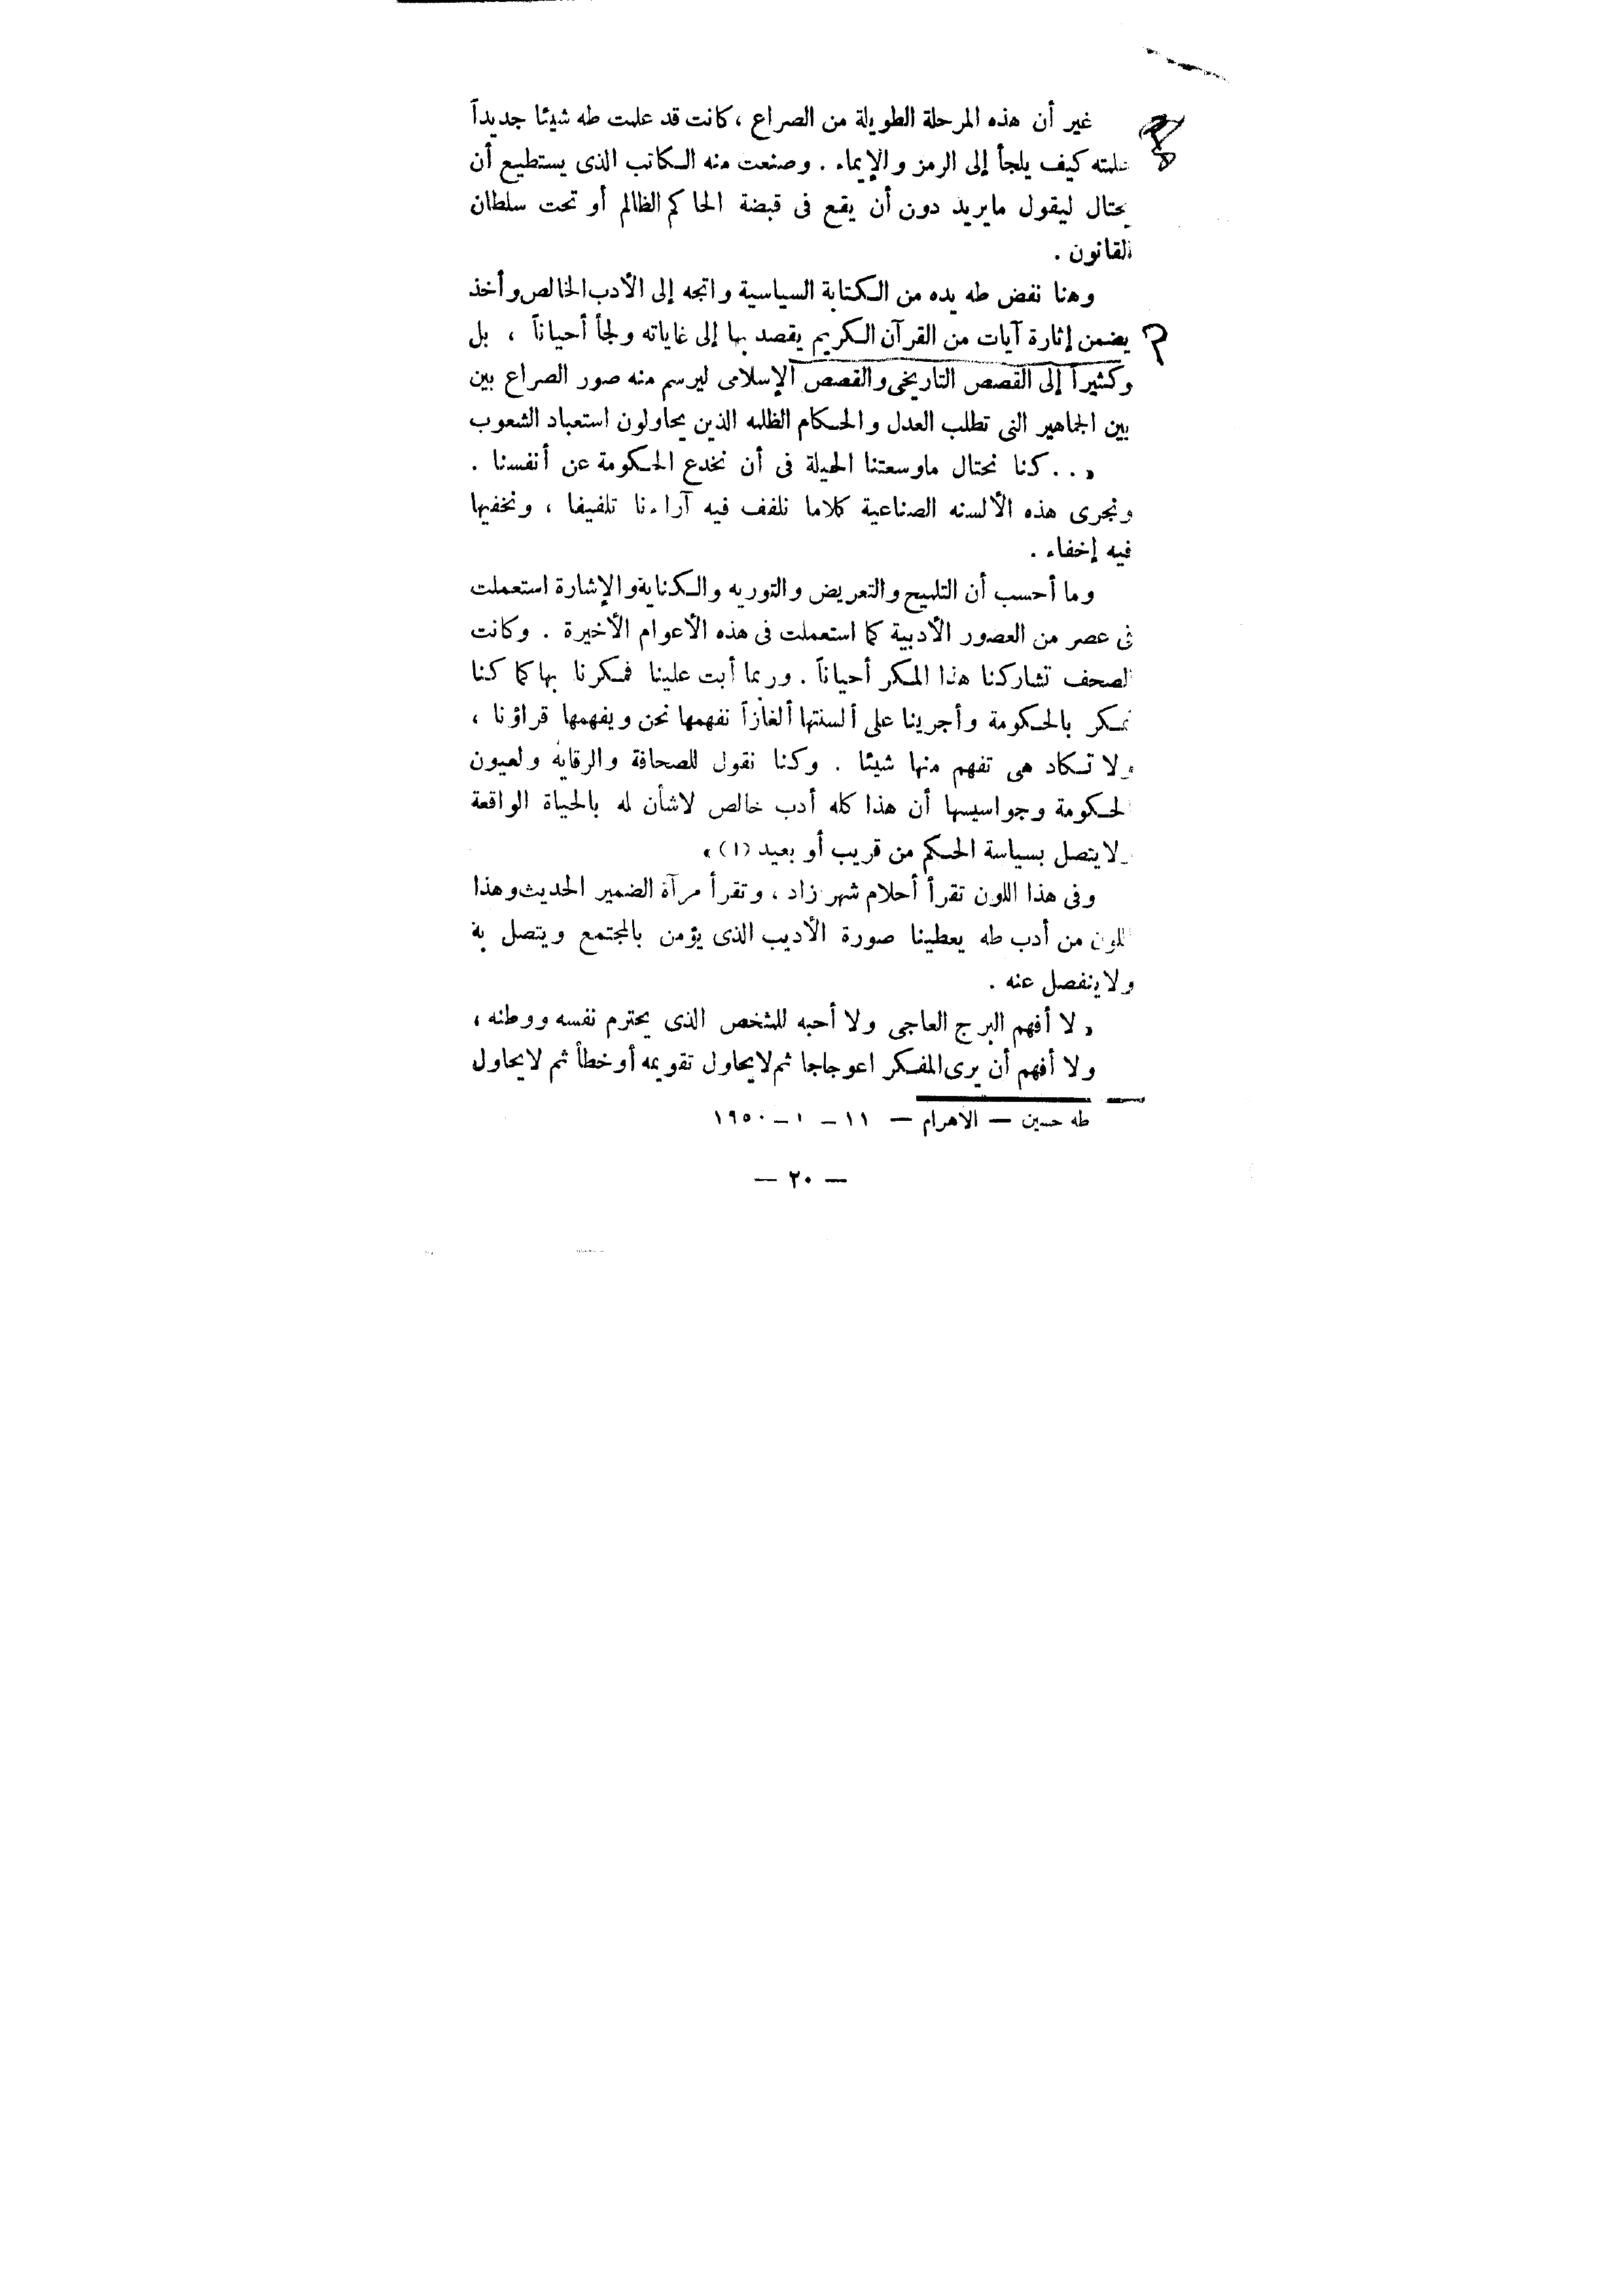 غير أن هذه المرحلة الطويلة من الصراع ، كانت قد علمت طه شيئا جديداً
علمته كيف يلجأ إلى الرمز والإيماء . وصنعت منه الكاتب الذى يستطيع أن
يحتال ليقول مايريد دون أن يقع فى قبضة الحاكم الظالم أو تحت سلطان
القانون .
وهنا نفض طه يده من الكتابة السياسية واتجه إلى الأدب الخالص وأخذ
يضمن إثارة آيات من القرآن الكريم يقصد بها إلى غاياته ولجأ أحياناً ، بل
وكثيراً إلى القصص التاريخى والقصص الإسلامى ليرسم منه صور الصراع بين
بين الجماهير التى تطلب العدل والحكام الظلمه الذين يحاولون استعباد الشعوب
« . . كنا نحتال ماوسعتنا الحيلة فى أن نخدع الحكومة عن أنفسنا .
ونجرى هذه الألسنه الصناعية كلاما نلفف فيه آراءنا تلفيفا ، ونخفيها
فيه إخفاء .
وما أحسب أن التلميح والتعريض والتوريه والكناية والإشارة استعملت
فى عصر من العصور الأدبية كما استعملت فى هذه الأعوام الأخيرة . وكانت
الصحف تشاركنا هذا المكر أحياناً . وربما أبت علينا فمكرنا بها كما كنا
نمكر بالحكومة وأجرينا على ألسنتها ألغازاً نفهمها نحن ويفهمها قراؤنا ،
ولا تكاد هى تفهم منها شيئا . وكنا نقول للصحافة والرقابة ولعيون
الحكومة وجواسيسها أن هذا كله أدب خالص لاشأن له بالحياة الواقعة
ولايتصل بسياسة الحكم من قريب أو بعيد (١) »
وفى هذا اللون تقرأ أحلام شهر زاد ، وتقرأ مرآة الضمير الحديث وهذا
اللون من أدب طه يعطينا صورة الأديب الذى يؤمن بالمجتمع ويتصل بة
ولاينفصل عنه .
« لا أفهم البرج العاجى ولا أحبه للشخص الذى يحترم نفسه ووطنه ،
ولا أفهم أن يرى المفكر اعوجاجا ثم لايحاول تقويمه أو خطأ ثم لايحاول
طه حسين — الاهرام — ١١ – ١ – ١٩٥٠
— ٢٠ —